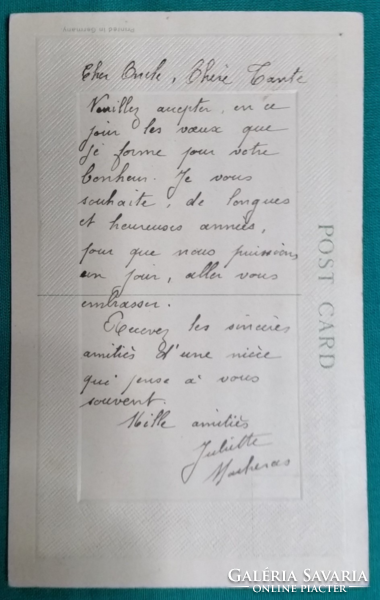 Printed in Germany
Cher Oncle, Chère Tante
Veuillez accepter, en ce
jour les vœux que
je forme pour votre
bonheur. Je vous
souhaite, de longues
et heureuses années,
pour que nous puissions
un jour, aller vous
embrasser.
Recevez les sincères
amitiés d'une nièce
qui pense à vous
souvent.
Mille amitiés
Juliette
POST CARD
GALÉRIA SAVARIA
ONLINE PIACTÉR